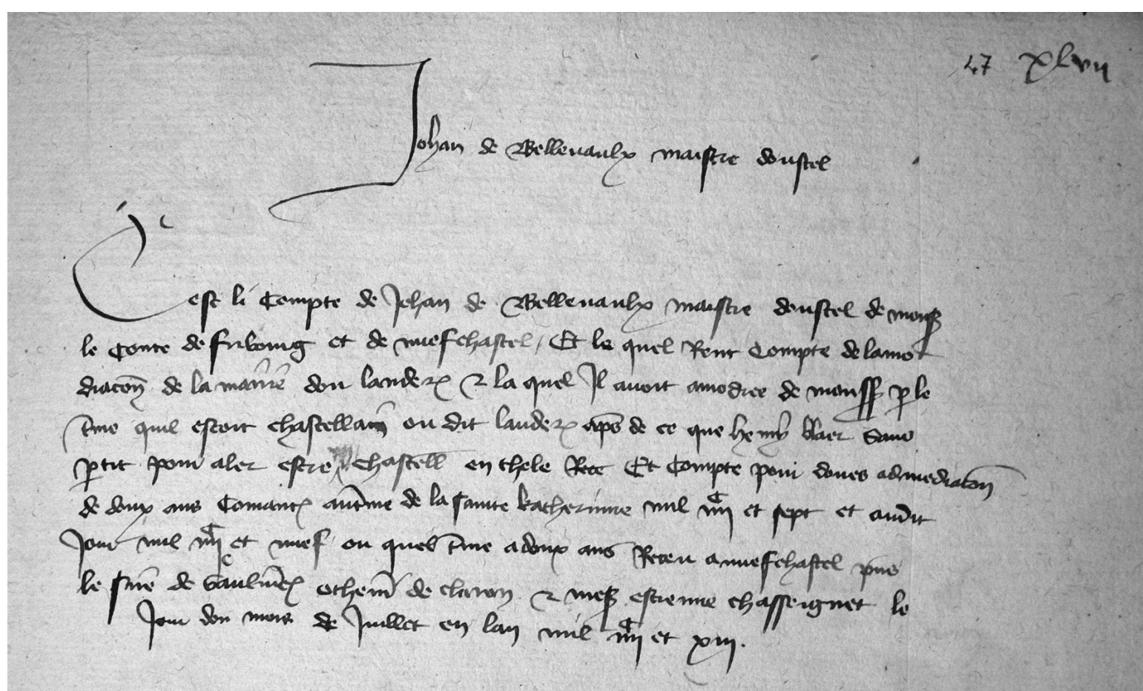 47 xlvii
Johan de Bellevaulx maistre doustel
Cest li Compte de Jehan de Bellevaulx maistre doustel de mons
le Conte de fribourg et de nuefchastel / Et le quel Rent Compte de lamo
diacon de la mairie dou landeron & la quel Il avoit amodiee de mons p le
tme quil estoit chastellain ou dit landeron aps de ce que henry sane
ptit pour aler estre chastell en thele Et Compte pour doues admediacon
de doux ans Comant aultme de la sainte katherinne mil iiijc et sept et audit
Jour mil iiijc et nuef ou quel tme a doux ans Receu a nuefchastel pns
le sire de othenin de cleron & mess estienne chasseignet le
Jour dou mois de Juillet en lan mil iiijc et xiii.